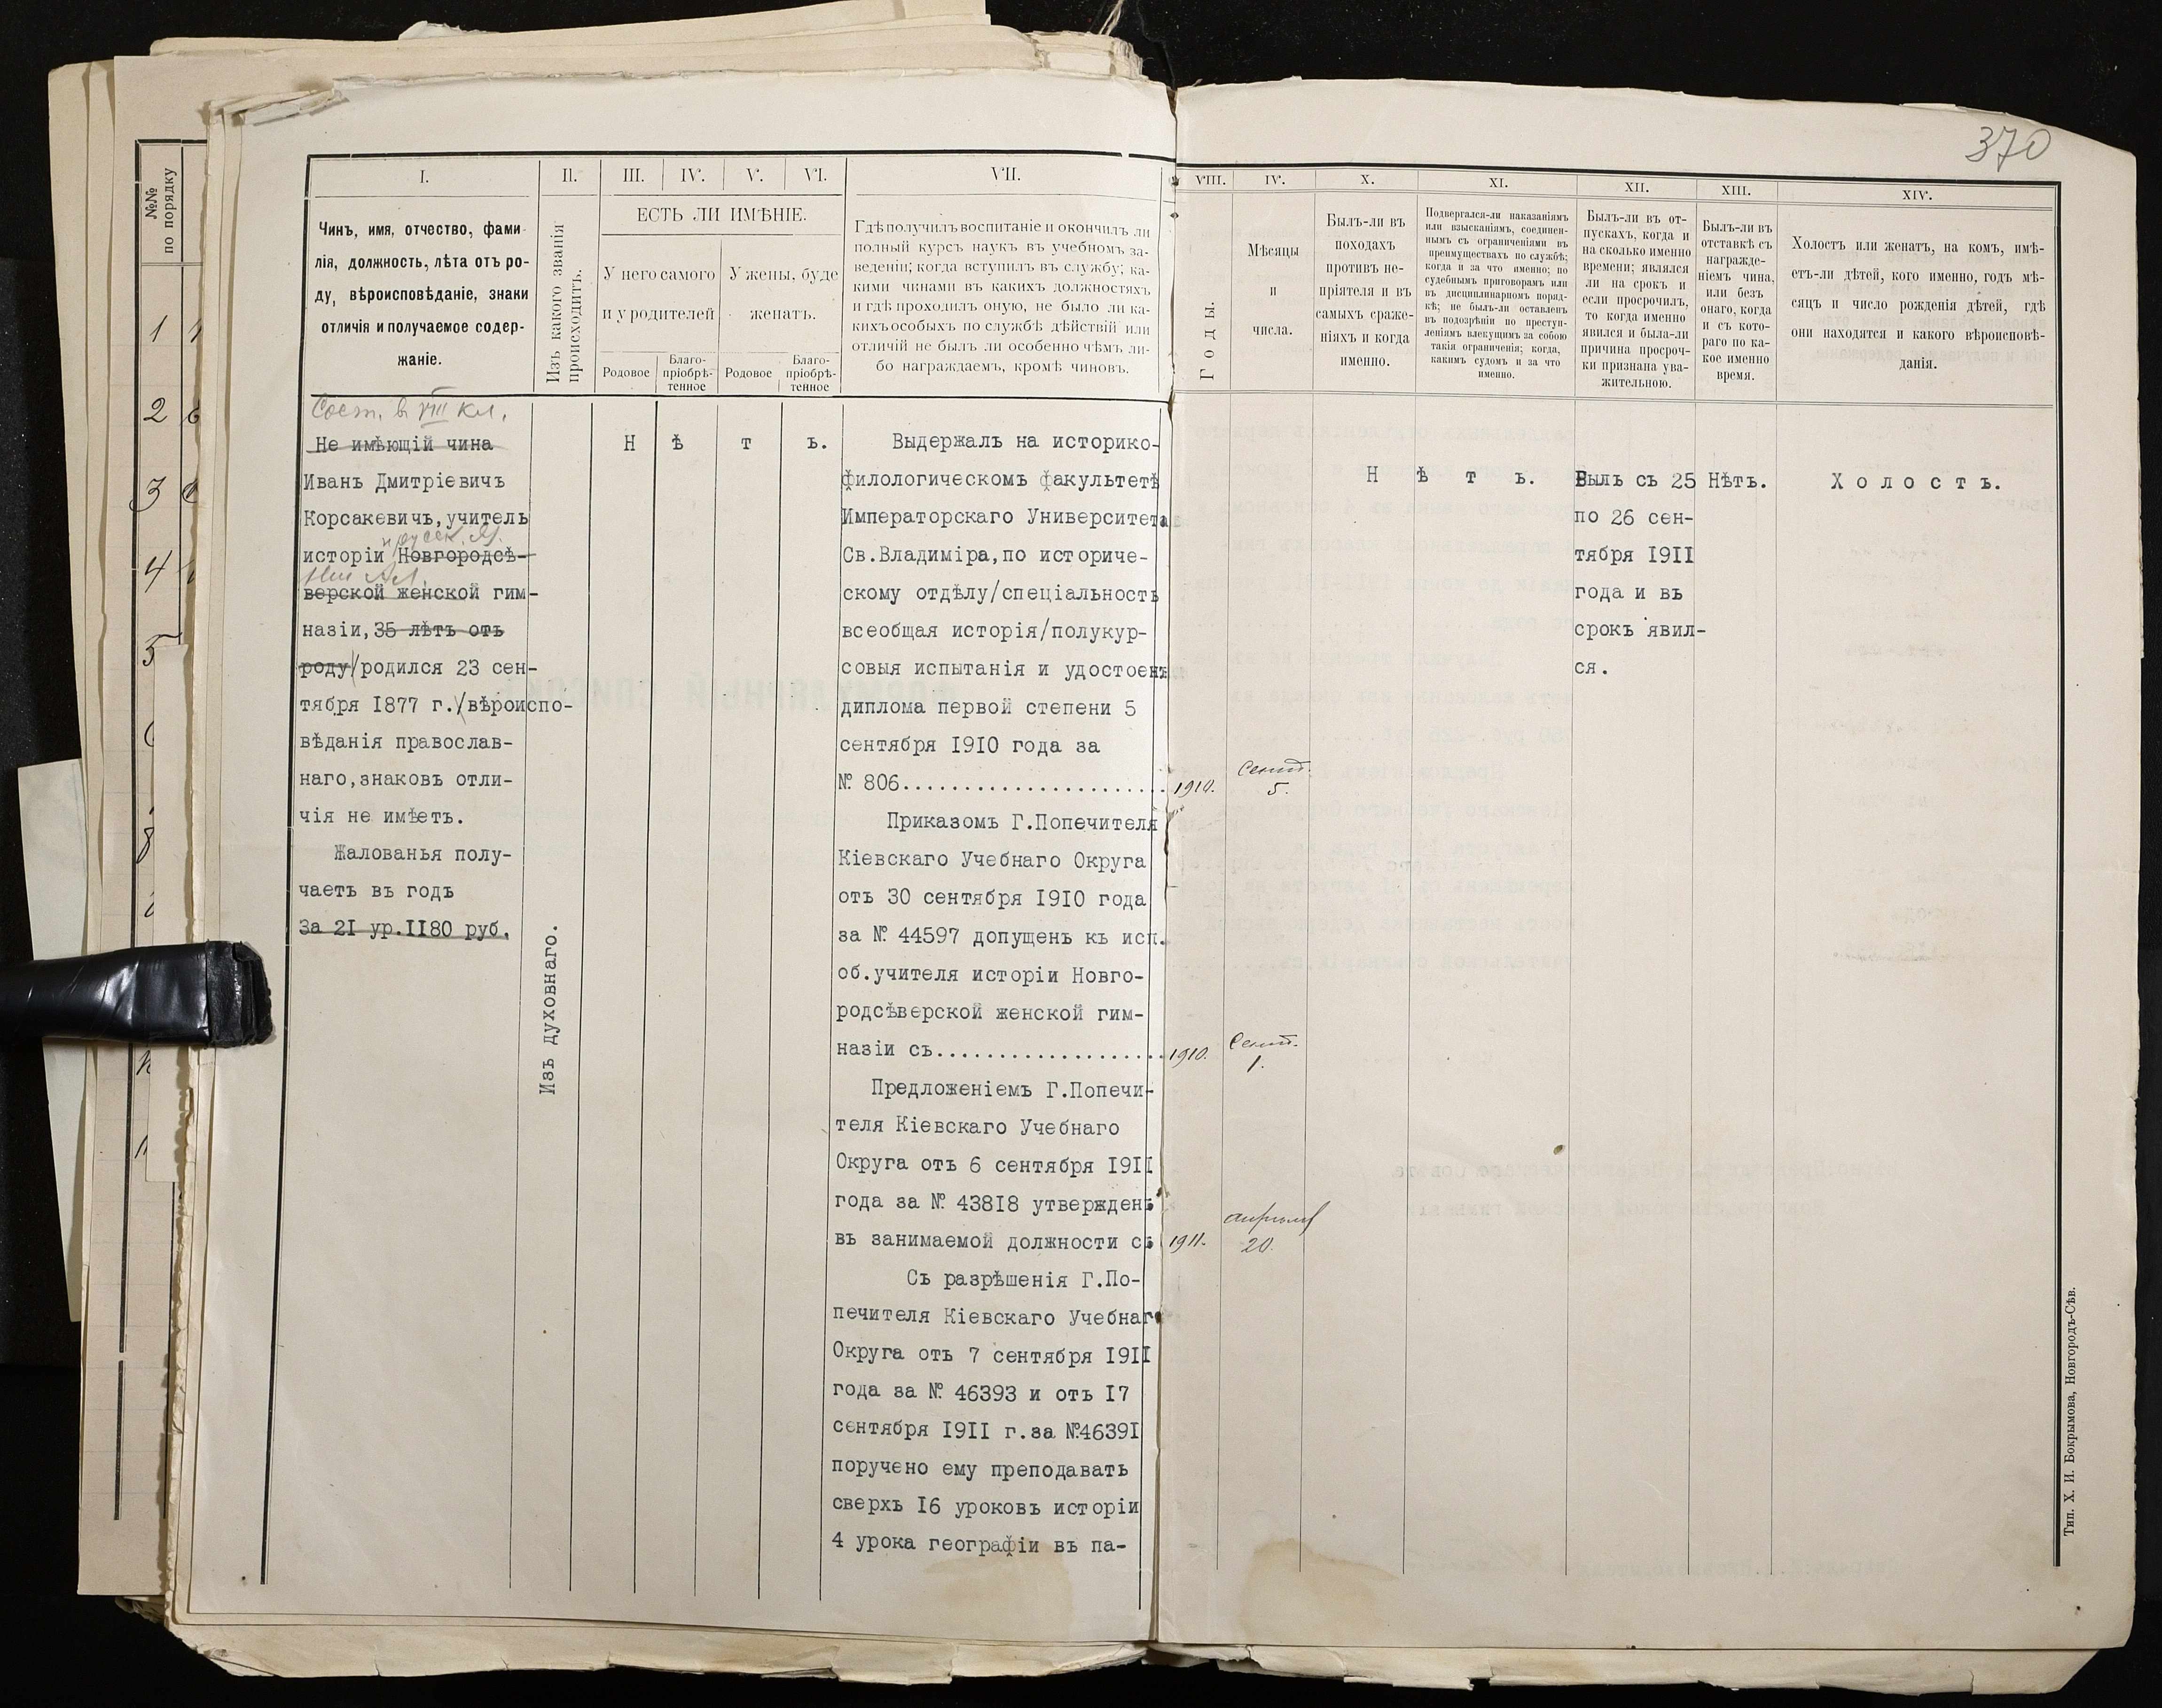 370
№№
по порядку
1
2
3
4
5
I.
Чинъ, имя, отчество, фами-
лія, должность, лѣта отъ ро-
ду, вѣроисповѣданіе, знаки
отличія и получаемое содер-
жаніе.
II.
Изъ какого званія
происходитъ.
III. IV. V. VI.
ЕСТЬ ЛИ ИМѢНІЕ.
У него самого
и у родителей
У жены, буде
женатъ.
Родовое
Благо-
пріобрѣ-
тенное
Родовое
Благо-
пріобрѣ-
тенное
VII.
Гдѣ получилъ воспитаніе и окончилъ ли
полный курсъ наукъ въ учебномъ за-
веденіи; когда вступилъ въ службу; ка-
кими чинами въ какихъ должностяхъ
и гдѣ проходилъ оную, не было ли ка-
кихъ особыхъ по службѣ дѣйствій или
отличій не былъ ли особенно чѣмъ ли-
бо награждаемъ, кромѣ чиновъ.
VIII.
Годы.
IV.
Мѣсяцы
и
числа.
X.
Былъ-ли въ
походахъ
противъ не-
пріятеля и въ
самыхъ сраже-
ніяхъ и когда
именно.
XI.
Подвергался-ли наказаніямъ
или взысканіямъ, соединен-
нымъ съ ограниченіями въ
преимуществахъ по службѣ;
когда и за что именно; по
судебнымъ приговорамъ или
въ дисциплинарномъ поряд-
кѣ; не былъ-ли оставленъ
въ подозрѣніи по преступ-
леніямъ влекущимъ за собою
такія ограниченія; когда,
какимъ судомъ и за что
именно.
XII.
Былъ-ли въ от-
пускахъ, когда и
на сколько именно
времени; являлся
ли на срокъ и
если просрочилъ,
то когда именно
явился и была-ли
причина просроч-
ки признана ува-
жительною.
XIII.
Былъ-ли въ
отставкѣ съ
награжде-
ніемъ чина,
или безъ
онаго, когда
и съ кото-
раго по ка-
кое именно
время.
XIV.
Холостъ или женатъ, на комъ, имѣ-
етъ-ли дѣтей, кого именно, годъ мѣ-
сяцъ и число рожденія дѣтей, гдѣ
они находятся и какого вѣроисповѣ-
данія.
Сост. в VIII кл.
Не имѣющій чина
Иванъ Дмитріевичъ
Корсакевичъ,учитель
исторіи Новгородсѣ-
верской женской гим-
назіи,35 лѣтъ отъ
роду/родился 23 сен-
тября 1877 г./вѣроиспо-
вѣданія православ-
наго,знаковъ отли-
чія не имѣетъ.
Жалованья полу-
чаетъ въ годъ
За 21 ур.1180 руб.
Изъ духовнаго.
Н ѣ т ъ.
Выдержалъ на историко-
филологическомъ факультетѣ
Императорскаго Университета
Св.Владиміра,по историче-
скому отдѣлу/спеціальность
всеобщая исторія/полукур-
совыя испытанія и удостоенъ
диплома первой степени 5
сентября 1910 года за
№ 806......................
1910. Сент. 5.
Приказомъ Г.Попечителя
Кіевскаго Учебнаго Округа
отъ 30 сентября 1910 года
за № 44597 допущенъ къ исп.
об.учителя исторіи Новго-
родсѣверской женской гим-
назіи съ...................
1910. Сент. 1.
Предложеніемъ Г.Попечи-
теля Кіевскаго Учебнаго
Округа отъ 6 сентября 1911
года за № 43818 утвержденъ
въ занимаемой должности съ
1911. апрѣля 20.
Съ разрѣшенія Г.По-
печителя Кіевскаго Учебнаго
Округа отъ 7 сентября 1911
года за № 46393 и отъ 17
сентября 1911 г.за №46391
поручено ему преподавать
сверхъ 16 уроковъ исторіи
4 урока географіи въ па-
Н ѣ т ъ.
Былъ съ 25
по 26 сен-
тября 1911
года и въ
срокъ явил-
ся.
Нѣтъ.
Х о л о с т ъ.
Тип. Х. И. Бокрымова, Новгородъ-Сѣв.